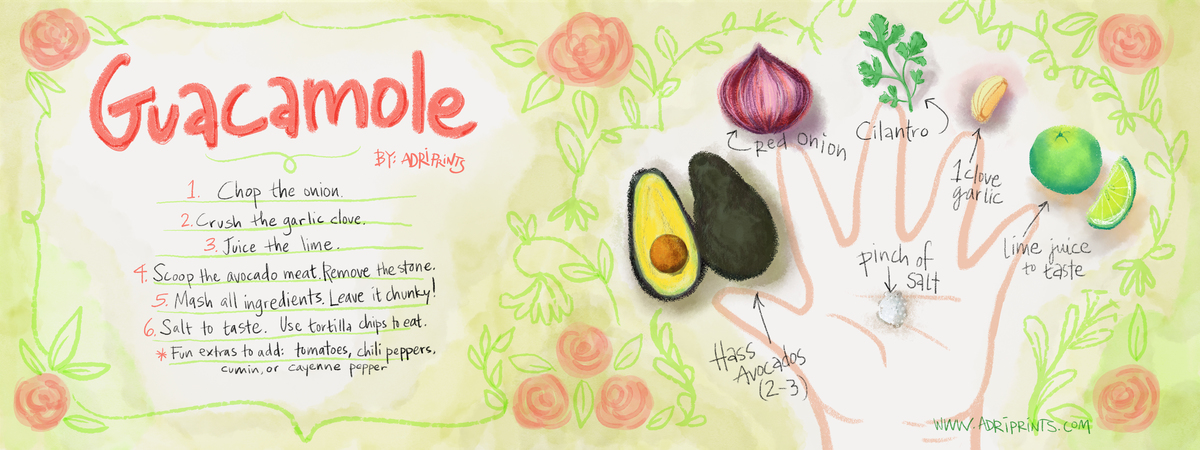 Guacamole
BY: ADRIPRINTS
1. Chop the onion.
2. Crush the garlic clove.
3. Juice the lime.
4. Scoop the avocado meat. Remove the stone.
5. Mash all ingredients. Leave it chunky!
6. Salt to taste. Use tortilla chips to eat.
* Fun extras to add: tomatoes, chili peppers,
cumin, or cayenne pepper
red onion
Cilantro
1 clove
garlic
lime juice
to taste
pinch of
salt
Hass
Avocados
(2-3)
WWW.ADRIPRINTS.COM